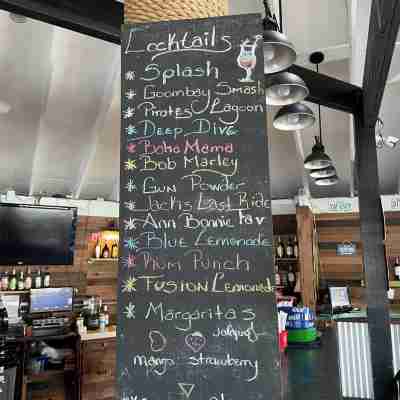 Cocktails
* Splash
* Goombay Smash
* Pirates Lagoon
* Deep Dive
* Baha Mama
* Bob Marley
* Gun Powder
* Jacks Last Ride
* Ann Bonnie Fav
* Blue Lemonade
* Rum Punch
* Fusion Lemonade
* Margaritas
jalapeño
mango strawberry